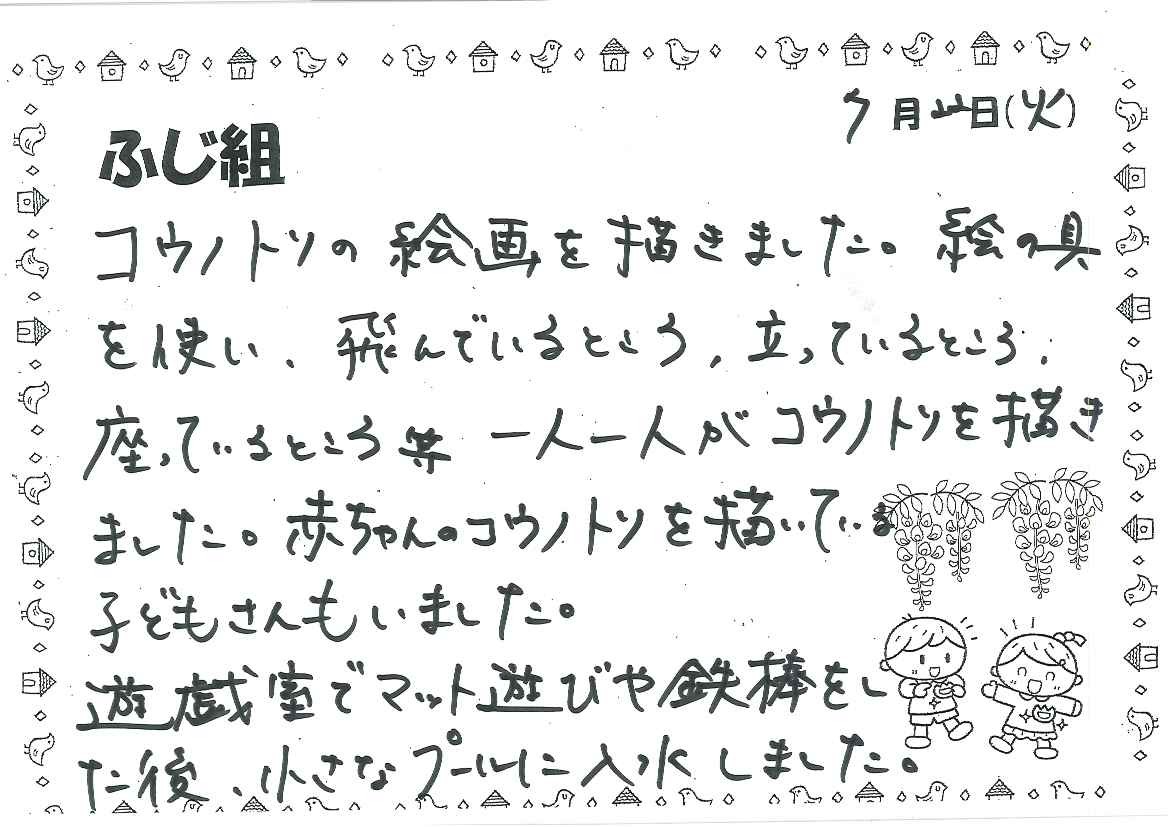 7月 日(火)
ふじ組
コウノトリの絵画を描きました。絵の具
を使い、飛んでいるところ、立っているところ、
座っているところ等 一人一人がコウノトリを描き
ました。赤ちゃんのコウノトリを描いている
子どもさんもいました。
遊戯室でマット遊びや鉄棒をし
た後、小さなプールに入水しました。